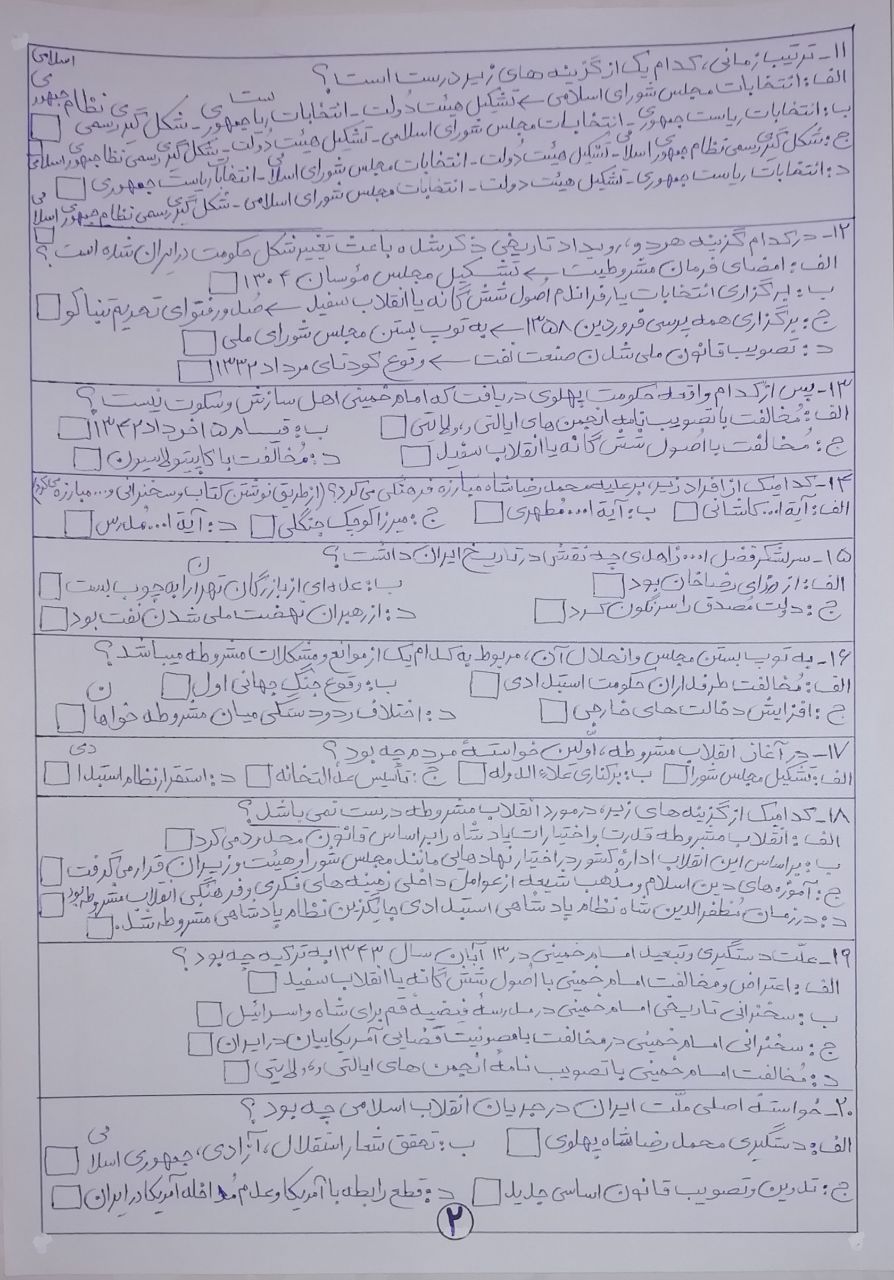 ۱۱- ترتیب زمانی، کدام یک از گزینه های زیر درست است؟
الف: انتخابات مجلس شورای اسلامی ← تشکیل هیئت دولت - انتخابات ریاست جمهوری - شکل گیری رسمی نظام جمهوری اسلامی
ب: انتخابات ریاست جمهوری - انتخابات مجلس شورای اسلامی - تشکیل هیئت دولت - شکل گیری رسمی نظام جمهوری اسلامی
ج: شکل گیری رسمی نظام جمهوری اسلامی - تشکیل هیئت دولت - انتخابات مجلس شورای اسلامی - انتخابات ریاست جمهوری
د: انتخابات ریاست جمهوری - تشکیل هیئت دولت - انتخابات مجلس شورای اسلامی - شکل گیری رسمی نظام جمهوری اسلامی
۱۲- در کدام گزینه هر دو، رویداد تاریخی ذکر شده باعث تغییر شکل حکومت در ایران شده است؟
الف: امضای فرمان مشروطیت ← تشکیل مجلس مؤسسان ۱۳۰۴
ب: برگزاری انتخابات یا رفراندم اصول شش گانه یا انقلاب سفید ← صدور فتوای تحریم تنباکو
ج: برگزاری همه پرسی فروردین ۱۳۵۸ ← به توپ بستن مجلس شورای ملی
د: تصویب قانون ملی شدن صنعت نفت ← وقوع کودتای مرداد ۱۳۳۲
۱۳- پس از کدام واقعه حکومت پهلوی دریافت که امام خمینی اهل سازش و سکوت نیست؟
الف: مخالفت با تصویب نامه انجمن های ایالتی و ولایتی
ب: قیام ۱۵ خرداد ۱۳۴۲
ج: مخالفت با اصول شش گانه یا انقلاب سفید
د: مخالفت با کاپیتولاسیون
۱۴- کدامیک از افراد زیر، بر علیه محمد رضا شاه مبارزه فرهنگی می کرد؟ (از طریق نوشتن کتاب و سخنرانی و... مبارزه می کرد)
الف: آیة ا... کاشانی
ب: آیة ا... مطهری
ج: میرزا کوچک جنگلی
د: آیة ا... مدرس
۱۵- سرلشکر فضل ا... زاهدی چه نقشی در تاریخ ایران داشت؟
الف: از وزرای رضا خان بود
ب: عده ای از بازرگان تهران را به چوب بست
ج: دولت مصدق را سرنگون کرد
د: از رهبران نهضت ملی شدن نفت بود
۱۶- به توپ بستن مجلس و انحلال آن، مربوط به کدام یک از موانع و مشکلات مشروطه میباشد؟
الف: مخالفت طرفداران حکومت استبدادی
ب: وقوع جنگ جهانی اول
ج: افزایش دخالت های خارجی
د: اختلاف و دودستگی میان مشروطه خواهان
۱۷- در آغاز انقلاب مشروطه، اولین خواستهٔ مردم چه بود؟
الف: تشکیل مجلس شورا
ب: برکناری علاء الدوله
ج: تأسیس عدالتخانه
د: استقرار نظام استبدادی
۱۸- کدامیک از گزینه های زیر، در مورد انقلاب مشروطه درست نمی باشد؟
الف: انقلاب مشروطه قدرت و اختیارات پادشاه را بر اساس قانون محدود می کرد
ب: بر اساس این انقلاب ادارهٔ کشور در اختیار نهادهایی مانند مجلس شورا و هیئت وزیران قرار می گرفت
ج: آموزه های دین اسلام و مذهب شیعه از عوامل داخلی زمینه های فکری و فرهنگی انقلاب مشروطه بود
د: در زمان مظفرالدین شاه نظام پادشاهی استبدادی جایگزین نظام پادشاهی مشروطه شد.
۱۹- علت دستگیری و تبعید امام خمینی در ۱۳ آبان سال ۱۳۴۳ به ترکیه چه بود؟
الف: اعتراض و مخالفت امام خمینی با اصول شش گانه یا انقلاب سفید
ب: سخنرانی تاریخی امام خمینی در مدرسهٔ فیضیهٔ قم برای شاه و اسرائیل
ج: سخنرانی امام خمینی در مخالفت با مصونیت قضایی آمریکاییان در ایران
د: مخالفت امام خمینی با تصویب نامهٔ انجمن های ایالتی و ولایتی
۲۰- خواستهٔ اصلی ملت ایران در جریان انقلاب اسلامی چه بود؟
الف: دستگیری محمد رضا شاه پهلوی
ب: تحقق شعار استقلال، آزادی، جمهوری اسلامی
ج: تدوین و تصویب قانون اساسی جدید
د: قطع رابطه با آمریکا و عدم مداخله آمریکا در ایران
۲